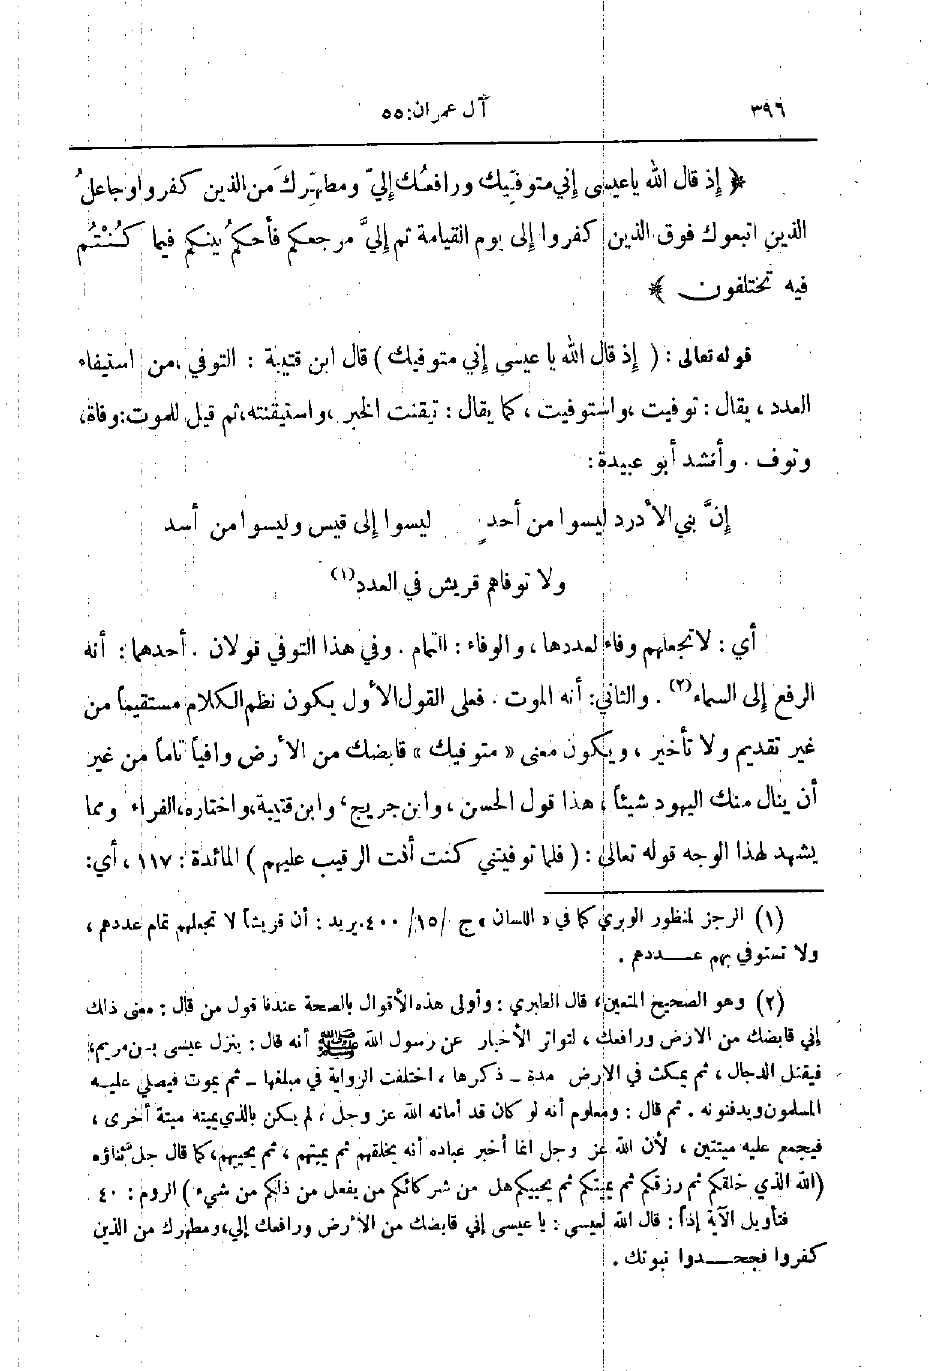 ٣٩٦
آل عمران: ٥٥
﴿ إذ قال الله يا عيسى إني متوفّيك ورافعُك إليّ ومطهّرك من الذين كفروا وجاعلُ
الذين اتبعوك فوق الذين كفروا إلى يوم القيامة ثم إليَّ مرجعكم فأحكمُ بينكم فيما كُنْتُم
فيه تختلفون ﴾
قوله تعالى : ( إذ قال الله يا عيسى إني متوفيك ) قال ابن قتيبة : التوفي ، من استيفاء
العدد ، يقال : توفيت ، واستوفيت ، كما يقال : تيقنت الخبر ، واستيقنته، ثم قيل للموت: وفاة،
وتوف . وأنشد أبو عبيدة :
إنَّ بني الأدرد ليسوا من أحدٍ ليسوا إلى قيس وليسوا من أسد
ولا توفاهم قريش في العدد(١)
أي : لا تجعلهم وفاء لعددها ، والوفاء : التمام . وفي هذا التوفي قولان . أحدهما : أنه
الرفع إلى السماء(٢) . والثاني : أنه الموت . فعلى القول الأول يكون نظم الكلام مستقيماً من
غير تقديم ولا تأخير ، ويكون معنى « متوفيك » قابضك من الأرض وافياً تاماً من غير
أن ينال منك اليهود شيئاً ، هذا قول الحسن ، وابن جريج ، وابن قتيبة، واختاره، الفراء ومما
يشهد لهذا الوجه قوله تعالى : ( فلما توفيتني كنت أنت الرقيب عليهم ) المائدة : ١١٧ ، أي :
(١) الرجز لمنظور الوبري كما في « اللسان » ج /١٥/ ٤٠٠. يريد : أن قريشاً لا تجعلهم تمام عددهم ،
ولا تستوفي بهم عــــددهم .
(٢) وهو الصحيح المتعين ، قال الطبري : وأولى هذه الأقوال بالصحة عندنا قول من قال : معنى ذلك
إني قابضك من الارض ورافعك ، لتواتر الأخبار عن رسول الله ﷺ أنه قال : ينزل عيسى بن مريم،
فيقتل الدجال ، ثم يمكث في الارض مدة ـ ذكرها ، اختلفت الرواية في مبلغها ـ ثم يموت فيصلي عليـه
المسلمون ويدفنونه . ثم قال : ومعلوم أنه لو كان قد أماته الله عز وجل ، لم يكن بالذي يميته ميتة أخرى ،
فيجمع عليه ميتتين ، لأن الله عز وجل انما أخبر عباده أنه يخلقهم ثم يميتهم ، ثم يحييهم، كما قال جل ثناؤه
(الله الذي خلقكم ثم رزقكم ثم يميتكم ثم يحييكم هل من شركائكم من يفعل من ذلكم من شيء ) الروم : ٤٠
فتأويل الآية إذاً : قال الله لعيسى : يا عيسى إني قابضك من الأرض ورافعك إلي، ومطهرك من الذين
كفروا فجحــــدوا نبوتك .